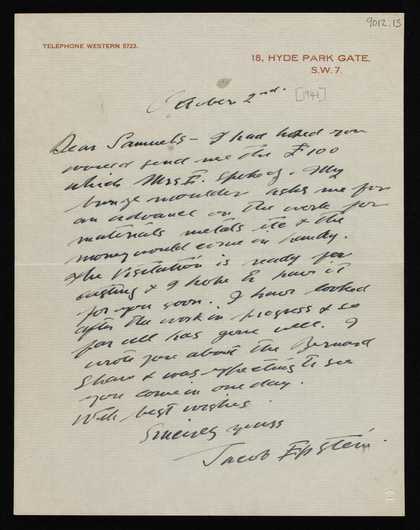 9012.13
TELEPHONE WESTERN 5723.
18, HYDE PARK GATE.
S.W. 7.
October 2nd.
[1942]
Dear Samuels – I had hoped you
would send me the £100
which Mrs E. spoke of. My
bronze moulder asks me for
an advance on the work for
materials metals etc & the
money would come in handy.
The Visitation is ready for
casting & I hope to have it
for you soon. I have looked
after the work in progress & so
far all has gone well. I
wrote you about the Bernard
Shaw & was expecting to see
you come in one day.
With best wishes
Sincerely yours
Jacob Epstein.